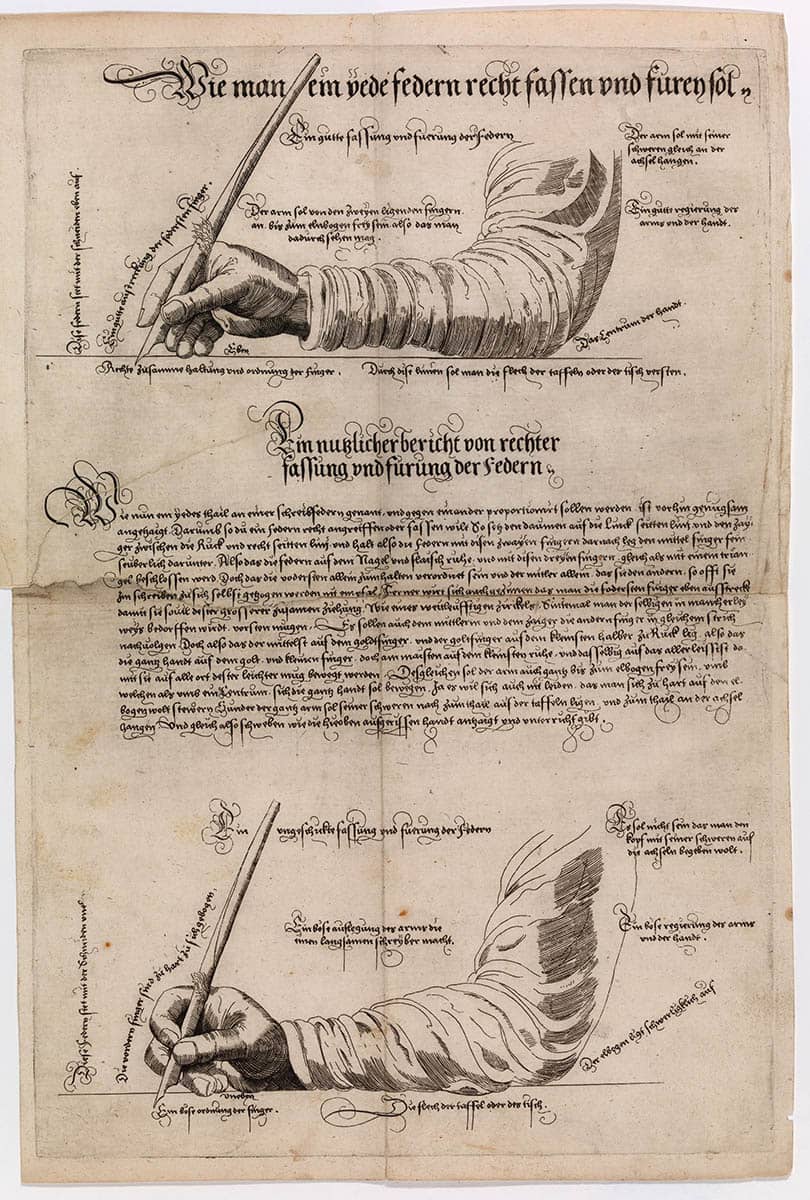 Wie man ein yede federn recht fassen vnd furen sol
Ein gutte fassung vnd fuerung der Federn
Der arm sol mit seiner
schweren gleich an der
achsel hangen.
Der arm sol von den zweyen ligenden fingern
an bis zum elnbogen frey sein, also das man
dadurch sehen mag.
Ein gutte regierung der
arms vnd der handt.
Dise federn sitt mit der schneiden eben auf
Ein gutte austreckung der federsten finger.
Das Centrum der handt.
Eben
Rechte zusamme haltung vnd ordnung der finger.
Durch dise linien sol man die flech der taffeln oder der tisch versten.
Ein nutzlicher bericht von rechter
fassung vnd furung der Federn
Wie nun ein yedes thail an einer schreibfedern genant, vnd gegen einander proportionirt sollen werden, ist vorhin genugsam
angezaigt. Darumb so du ein federn recht angreiffen oder fassen wilt So setz den daumen auf die Linck seitten linj, vnd den zay,
ger zwischen die Rück vnd recht seitten linj, vnd halt also die federn mit disen zwayen fingern darnach leg den mittel finger fein
seüberlich darunter, Also das die federn auf dem Nagel vnd flaisch ruhe, vnd mit disen dreyen fingern, gleich als mit einem trian
gel beschlossen werd Doch das die vodersten allein zum halten verordnet sein vnd der mitler allein, das sie den andern, so offt sie
zu schreiben zu sich selbst gezogen werden mit empfahe. Ferner wirt sich auch gezimen das man die fodersten finger eben ausstreck
damit sie souil dester grosserer zusamen ziehung, Wie eines weitleüffigen zirckels, Sintemal man der selbigen in mancherley
weys bedorffen wirdt, vorsten mügen. Es sollen auch dem mittlern vnd dem zaiger die andern finger in gleichem strich
nachuolgen Doch also das der mittelst auf dem goltfinger, vnd der goltfinger auf dem kleinsten halber zu Rück lig, also das
die gantz handt auf dem golt, vnd kleinen finger, doch am maisten auf dem kleinsten ruhe, vnd dasselbig auf das aller leissist da
mit sie auf alle ort dester leichter müg bewegt werden. Desgleichen sol der arm auch gantz bis zum elbogen frey sein, vmb
welchen als vmb ein Centrum, sich die gantz handt sol bewegen, Ja es wil sich auch nit leiden, das man sich zu hart auf den el
bogen wolt stewern Sünder der gantz arm sol seiner schweren nach zum thail auf der taffeln ligen, vnd zum thail an der achsel
hangen, Vnd gleich also schweben wie die hieoben aufgerissen handt anzaigt vnd vnterricht gibt.
Ein vngeschickte fassung vnd fuerung der Federn
Es sol nicht sein das man den
kopf mit seiner schweren auf
die achseln begeben wolt.
Ein böse auflegung des arms die
einen langsamen schreyber macht.
Ein böse regierung des arms
vnd der handt.
Diese Federn sitt mit der Schneiden vneben
Die vordern finger sind zu hart zu sich gebogen.
Der elbogen ligt schwerligklich auf
vneben
Ein böse ordnung der finger.
Die flech der taffel oder des tisch.